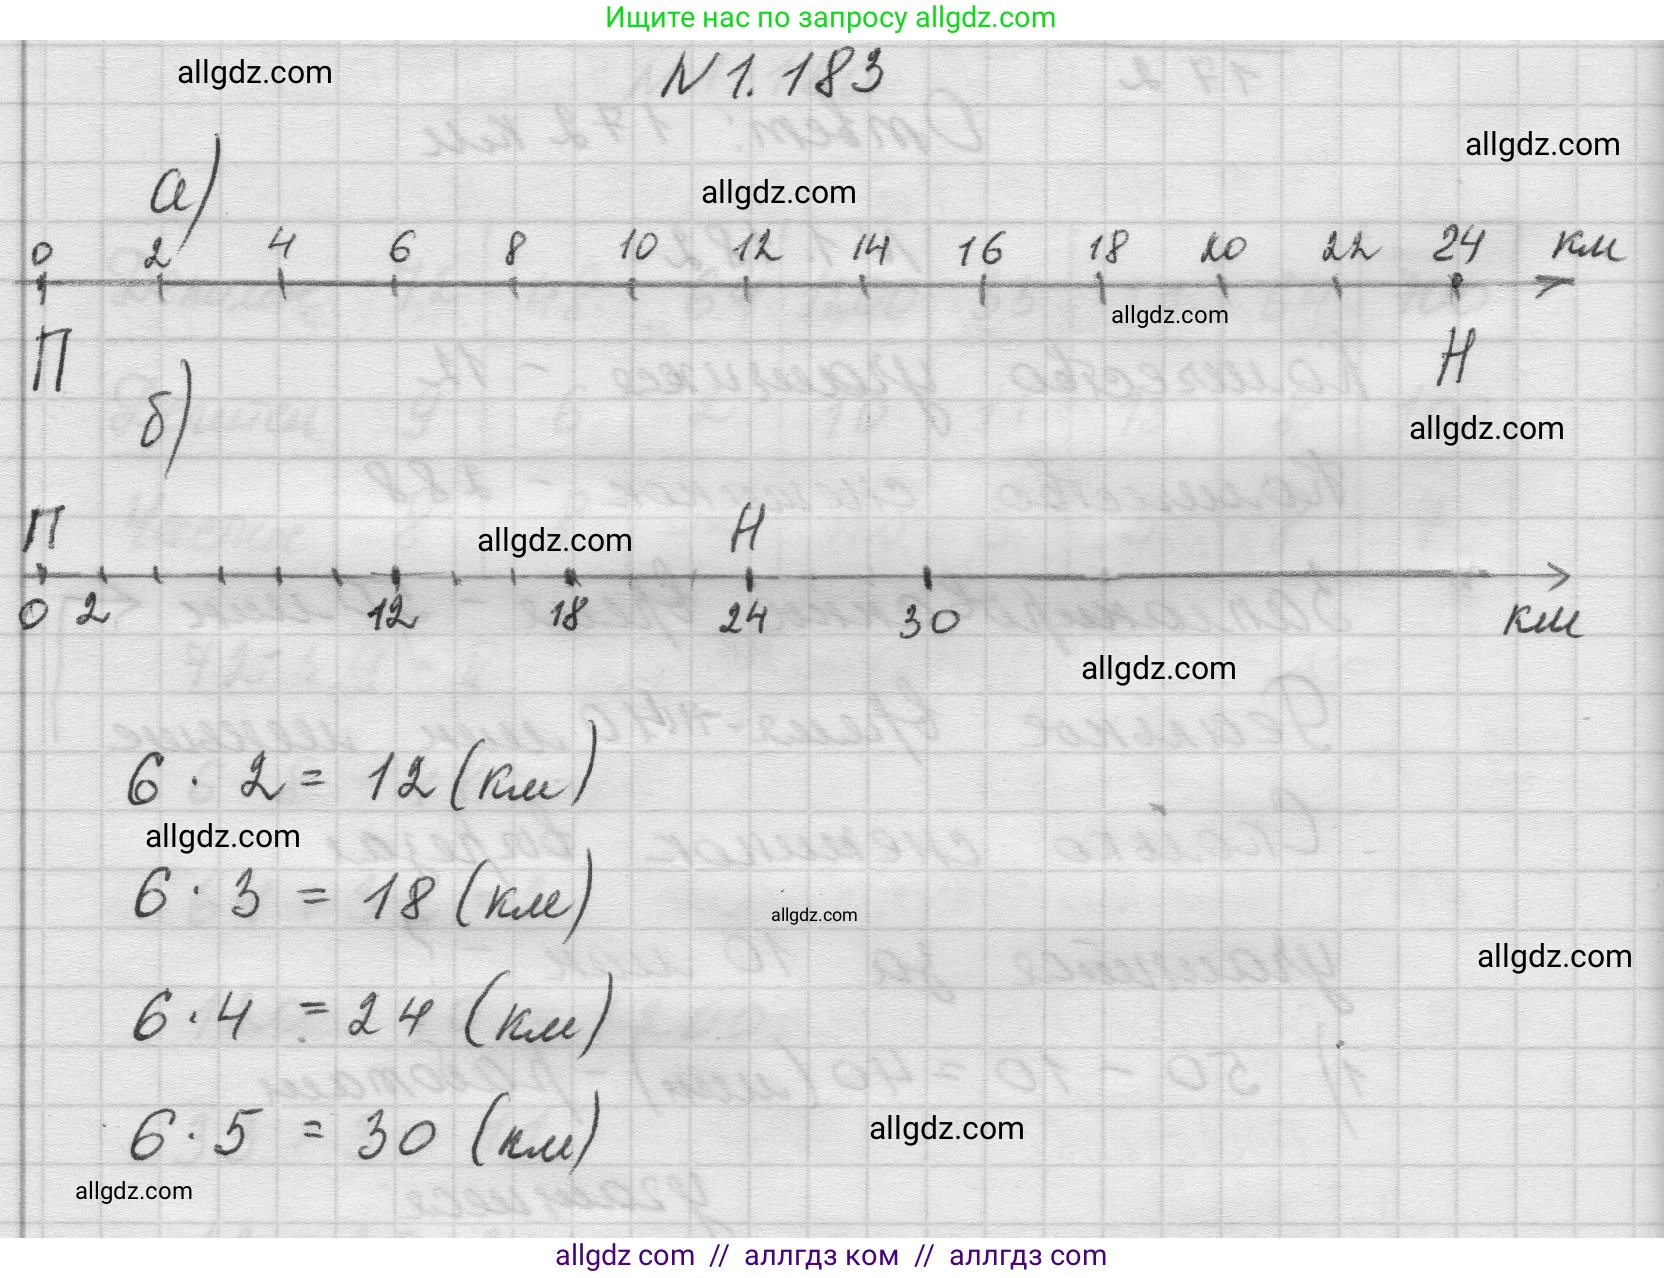 Ищите нас по запросу allgdz.com
N 1.183
allgdz.com
allgdz.com
а)
allgdz.com
0 2 4 6 8 10 12 14 16 18 20 22 24 км
allgdz.com
П Н
б)
allgdz.com
П Н
allgdz.com
0 2 12 18 24 30 км
allgdz.com
6 · 2 = 12 (км)
allgdz.com
6 · 3 = 18 (км)
allgdz.com
allgdz.com
6 · 4 = 24 (км)
6 · 5 = 30 (км)
allgdz.com
allgdz.com
allgdz com // аллгдз ком // аллгдз com